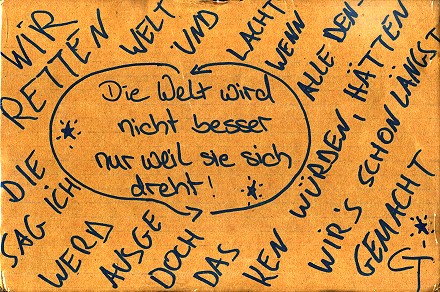 WIR
RETTEN
DIE WELT
SAG ICH UND
WERD AUSGE LACHT
DOCH WENN
DAS ALLE DEN-
KEN WÜRDEN, HÄTTEN
WIR'S SCHON LÄNGST
GEMACHT
Die Welt wird
nicht besser
nur weil sie sich
dreht!